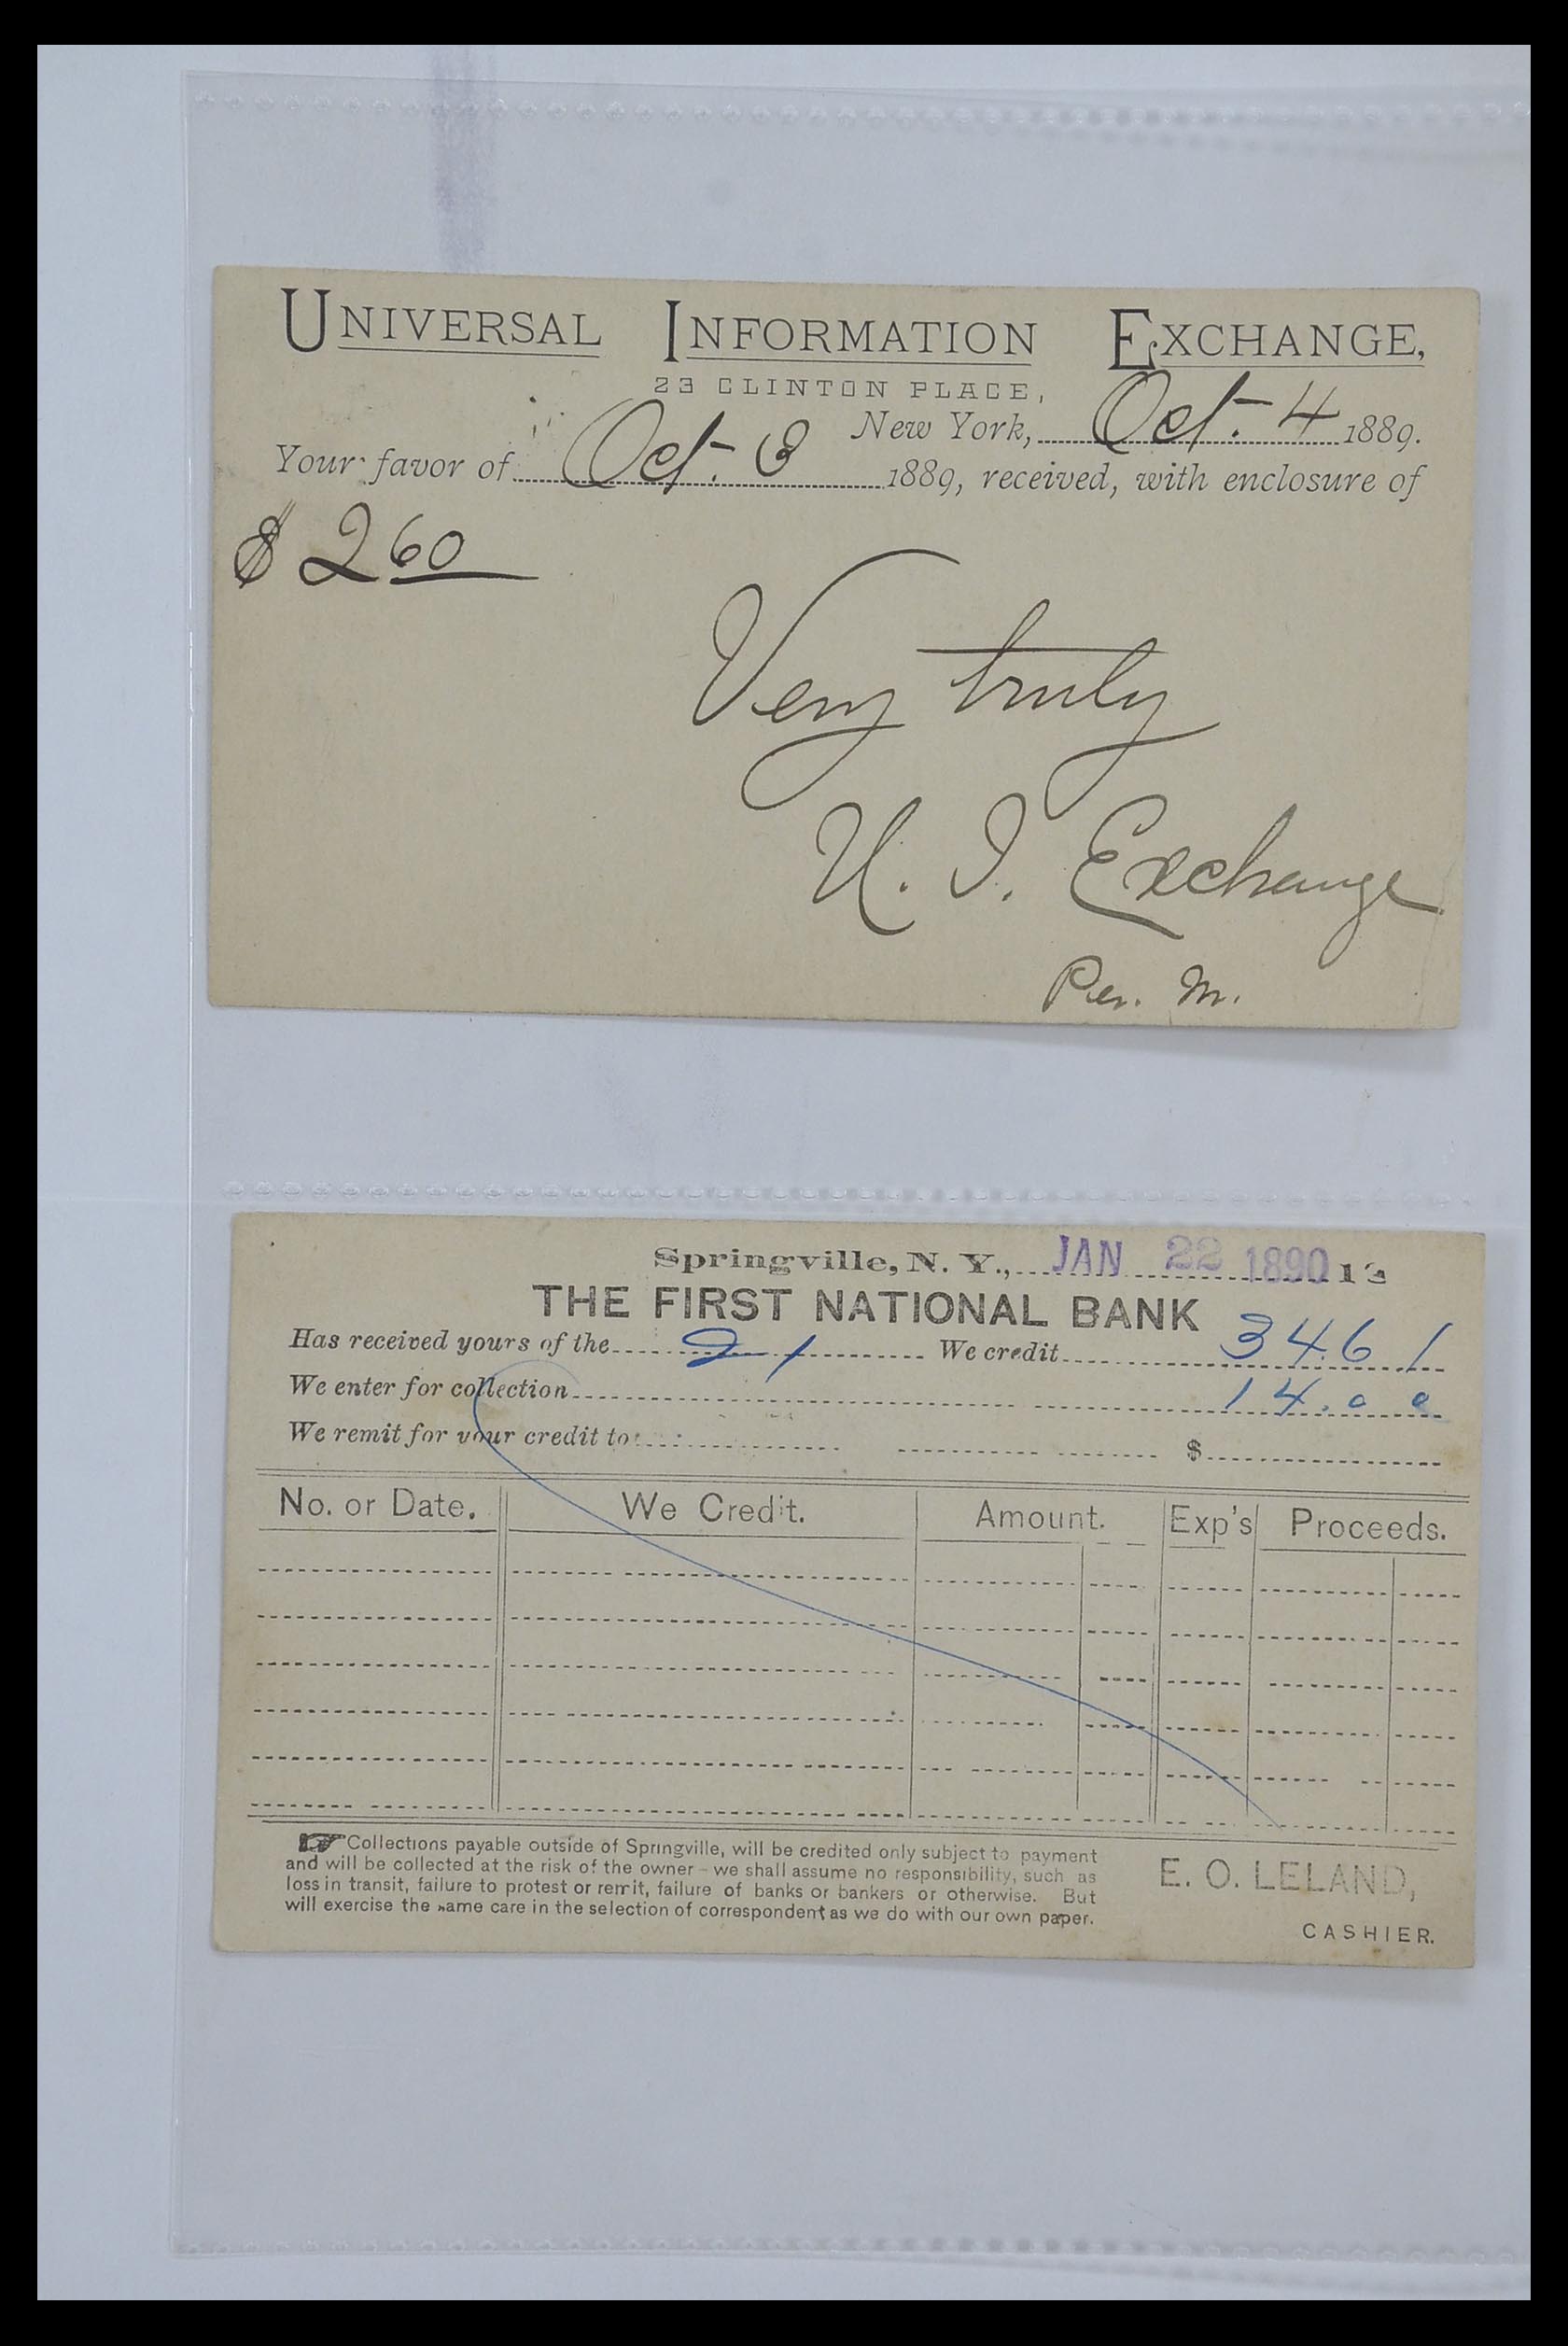 UNIVERSAL INFORMATION EXCHANGE,
23 CLINTON PLACE,
New York, Oct. 4 1889.
Your favor of Oct. 3 1889, received, with enclosure of
$ 2 60
Very truly
U. I. Exchange
Per. M.
Springville, N. Y., JAN 22 1890 1
THE FIRST NATIONAL BANK
Has received yours of the 21 We credit 34.61
We enter for collection 14.00
We remit for your credit to $
No. or Date. We Credit. Amount. Exp's Proceeds.
☞ Collections payable outside of Springville, will be credited only subject to payment
and will be collected at the risk of the owner - we shall assume no responsibility, such as
loss in transit, failure to protest or remit, failure of banks or bankers or otherwise. But
will exercise the same care in the selection of correspondent as we do with our own paper.
E. O. LELAND,
CASHIER.